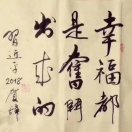 幸福都
是奮鬥
出来的
習近平2018